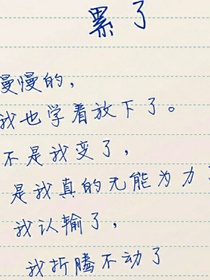 累了
慢慢的，
我也学着放下了。
不是我变了，
是我真的无能为力了
我认输了，
我折腾不动了